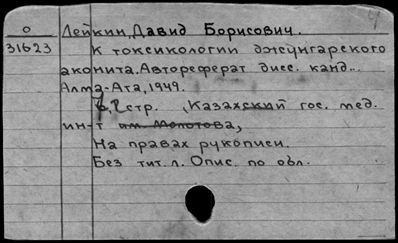 О Лейкин, Давид Борисович.
31623 К токсикологии джунгарского
аконита. Автореферат дисс. канд..
Алма-Ата, 1949.
стр. , Казахский гос. мед.
ин-т им. Молотова,
На правах рукописи.
Без тит. л. Опис. по обл.